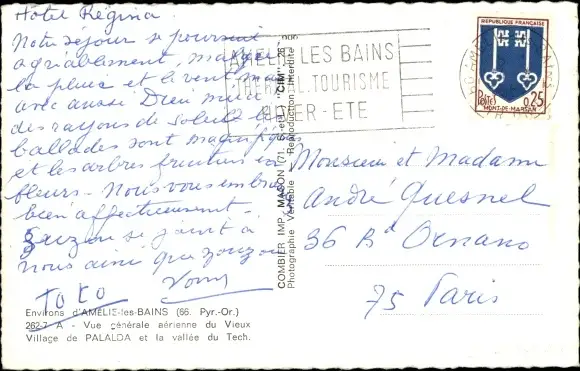 Hôtel Régina
Notre séjour se poursuit
agréablement, malgré
la pluie et le vent mais
avec aussi Dieu merci
des rayons de soleil. Les
ballades sont magnifiques
et les arbres fruitiers en
fleurs - Nous vous embrassons
bien affectueusement -
se joint à
nous ainsi que
TOTO
Environs d'AMÉLIE-les-BAINS (66. Pyr.-Or.)
262-7 A - Vue générale aérienne du Vieux
Village de PALALDA et la vallée du Tech.
COMBIER IMP. MACON (71) S.-et-L. "CIM"
Photographie Véritable - Reproduction Interdite
AMELIE LES BAINS
THERMAL.TOURISME
HIVER-ETE
REPUBLIQUE FRANÇAISE
POSTES 0,25
MONT-DE-MARSAN
Monsieur et Madame
André Quesnel
36 Bd Ornano
75 Paris